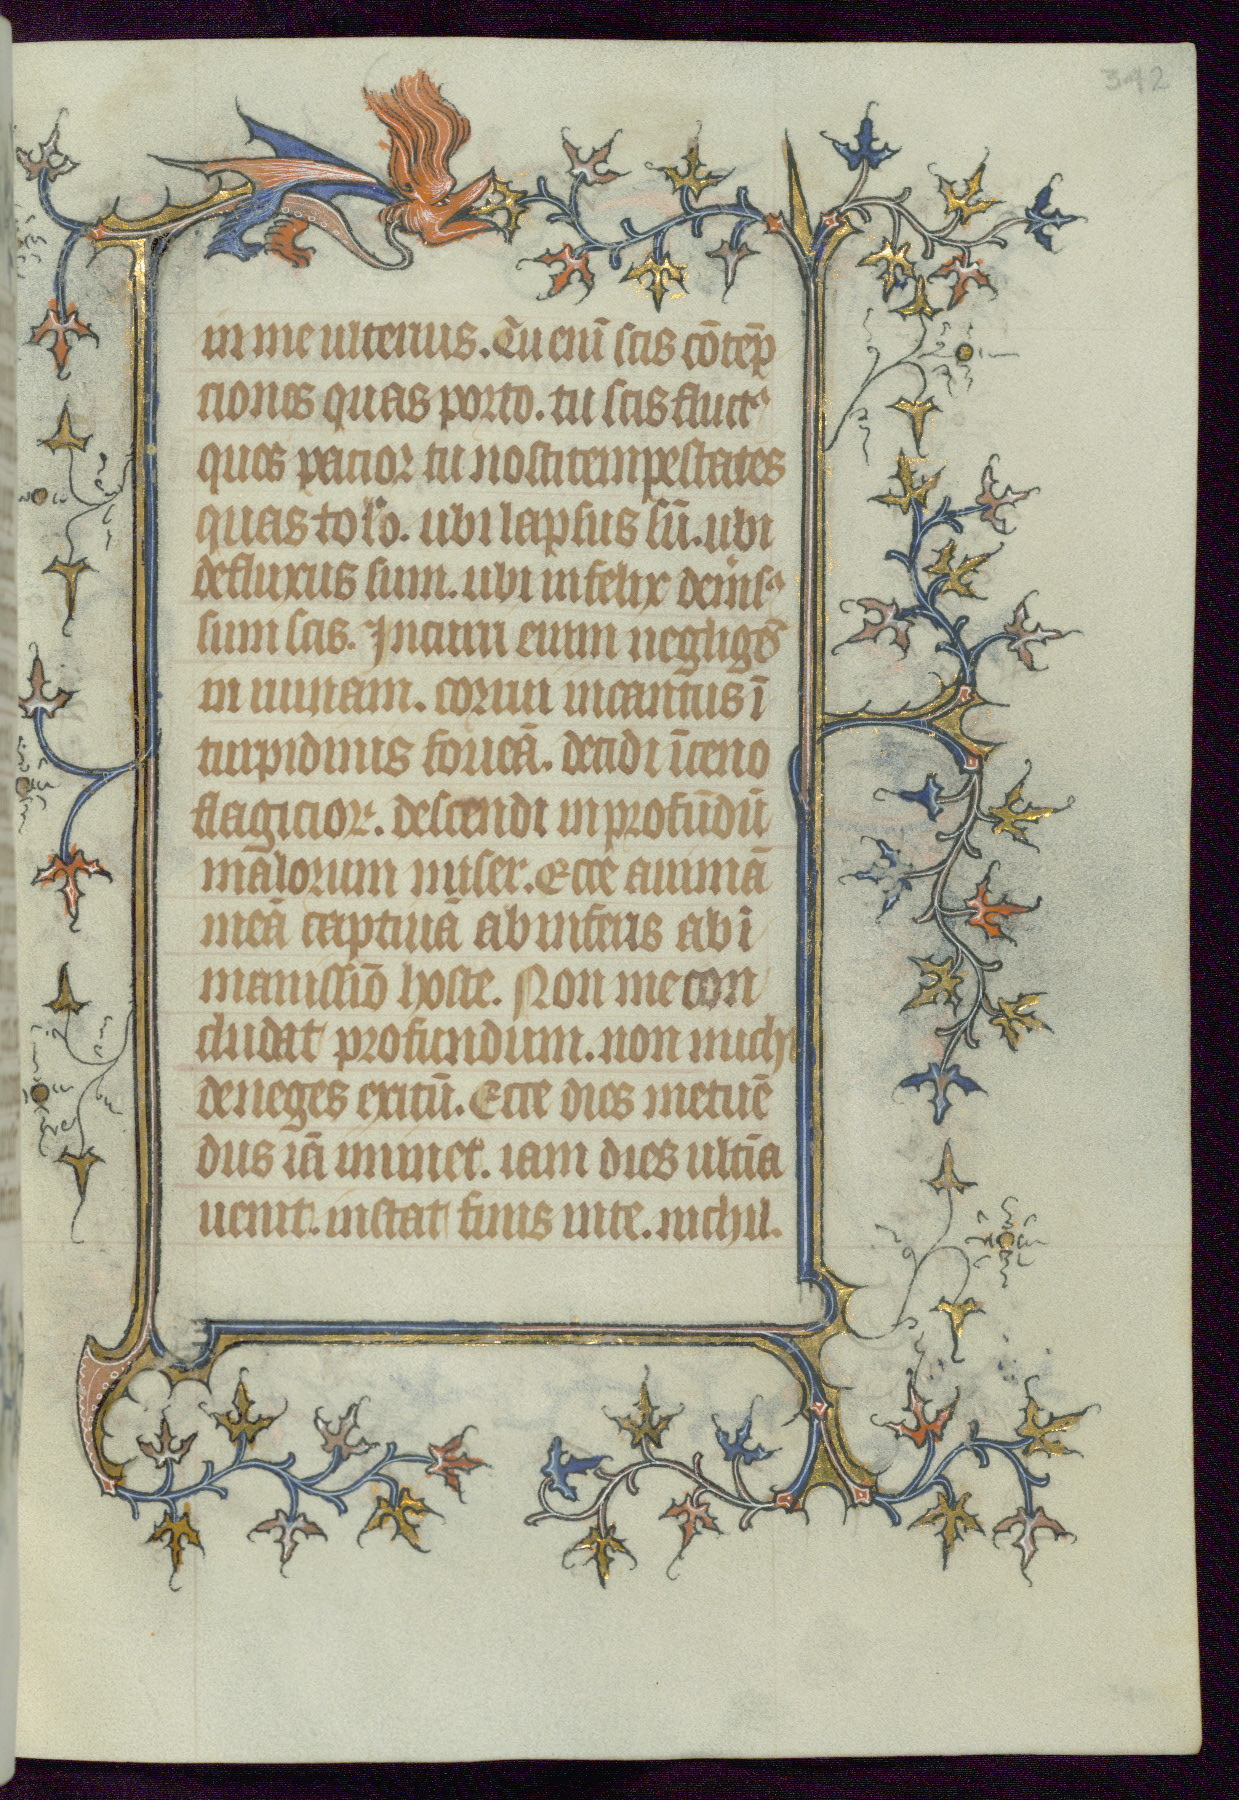 342
in me ulterius. Tu eni̅ scis co̅te̅p
ciones quas porto. tu scis fluctꝰ
quos pacior tu nosti tempestates
quas tolo. ubi lapsus su̅. ubi
defluxus sum. ubi infelix demisꝰ
sum scis. Incurri enim neglige̅s
in ruinam. corrui incautus i̅
turpidinis fouea̅. decidi i̅ ceno
flagicioꝝ. descendi in profu̅du̅
malorum miser. Ecce anima̅
mea̅ captiua̅ ab inferis ab i
manissio̅ hoste. Non me con
cludat profundum. non michi
deneges exitu̅. Ecce dies metue̅
dus ia̅ iminet. iam dies ulti̅a
uenit. instat finis uite. nichil.